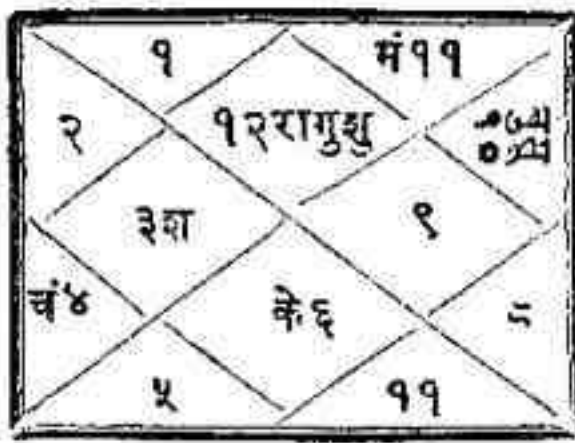 १ मं११
२ १२रागुशु
३श ९
चं४ के६ ८
५ ११